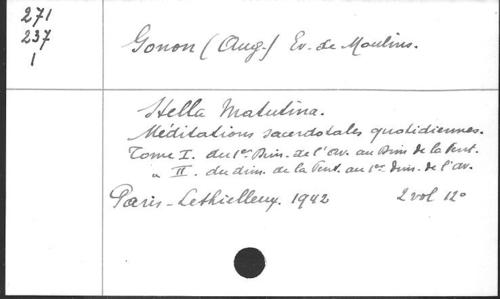 271
237
1
Gonon (Aug.) Ev. de Moulins.
Stella Matutina.
Méditations sacerdotales quotidiennes.
Tome I. du 1er Dim. de l'Av. au Dim de la Pent.
" II. du dim. de la Pent. au 1er dim. de l'Av.
Paris - Lethielleux. 1942 2 vol 12°